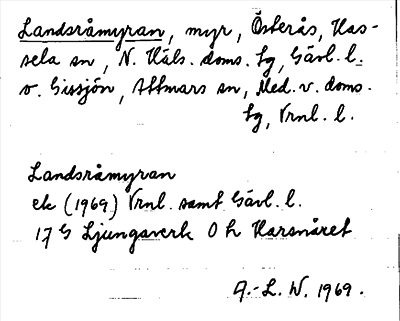 Landsråmyran, myr, Österås, Has-
sela sn, N. Häls. doms. tg, Gävl. l.
o. Gissjön, Attmars sn, Med. v. doms.
tg, Vrnl. l.
Landsråmyran
ek (1969) Vrnl. samt Gävl. l.
17 G Ljungaverk 0 h Harsnåret
A.-L. W. 1969.